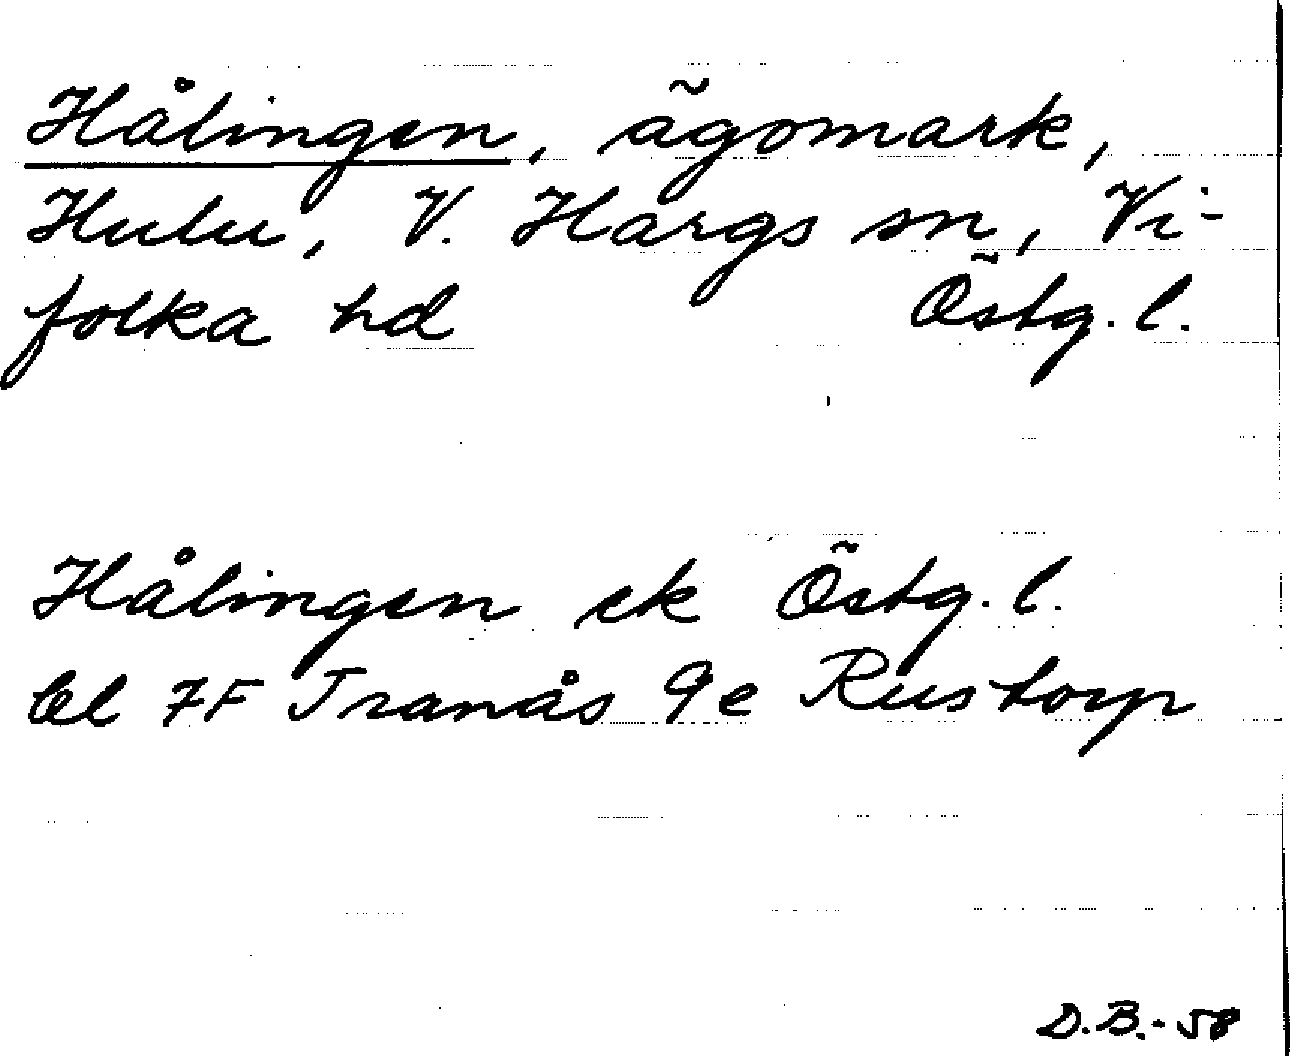 Hålingen, ägomark,
Hulu, V. Hargs sn, Vi-
folka hd Östg. l.
Hålingen ek Östg. l.
bl 7F Tranås 9e Rustorp
D.B.-58